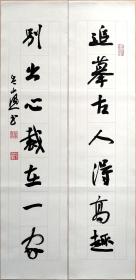 追摹古人得高趣
別出心裁在一家